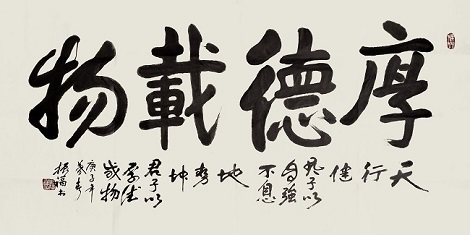 厚德載物
天
行
健
君子以
自強
不息
地
勢
坤
君子以
厚德
載物
庚子年